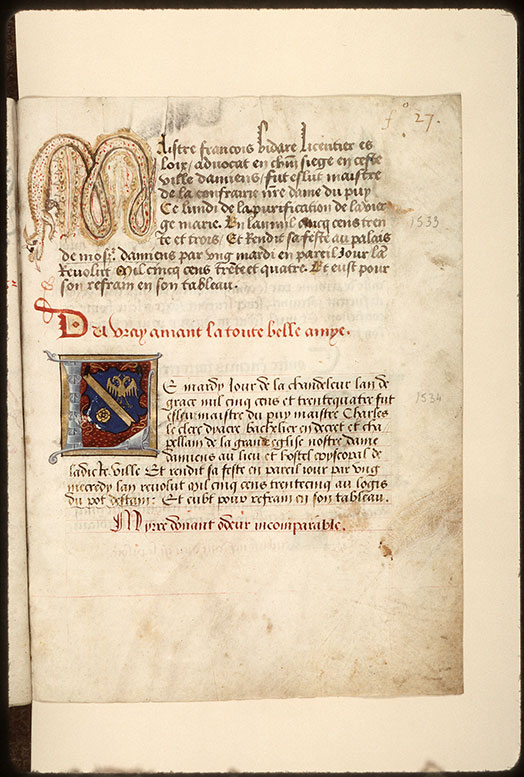 fº 27.
Maistre francois bidare licentier es
loix / advocat en chm siege en ceste
ville damiens / fut eslut maistre
de la confrarie nre dame du puy
Ce lundi de la purification de la vier
ge marie. En lan mil cincq cens tren
te et trois / Et Rendit sa feste au palais
de mosr. damiens par vng mardi en pareil Jour lan
Revolut mil cincq cens trete et quatre. Et eust pour
son refrain en son tableau.
1533
Du vray amant la toute belle amye.
Le mardy Jour de la chandeleur lan de
grace mil cinq cens et trentequatre fut
esleu maistre du puy maistre Charles
le clerc dyacre bachelier en decret et cha
pellain de la grande eglise nostre dame
damiens au lieu et hostel episcopal de
ladicte ville Et rendit sa feste en pareil iour par vng
mercredy lan revolut mil cinq cens trentecinq au logis
du pot destain: Et eubt pour refrain en son tableau.
1534
Myrre donant odeur incomparable.